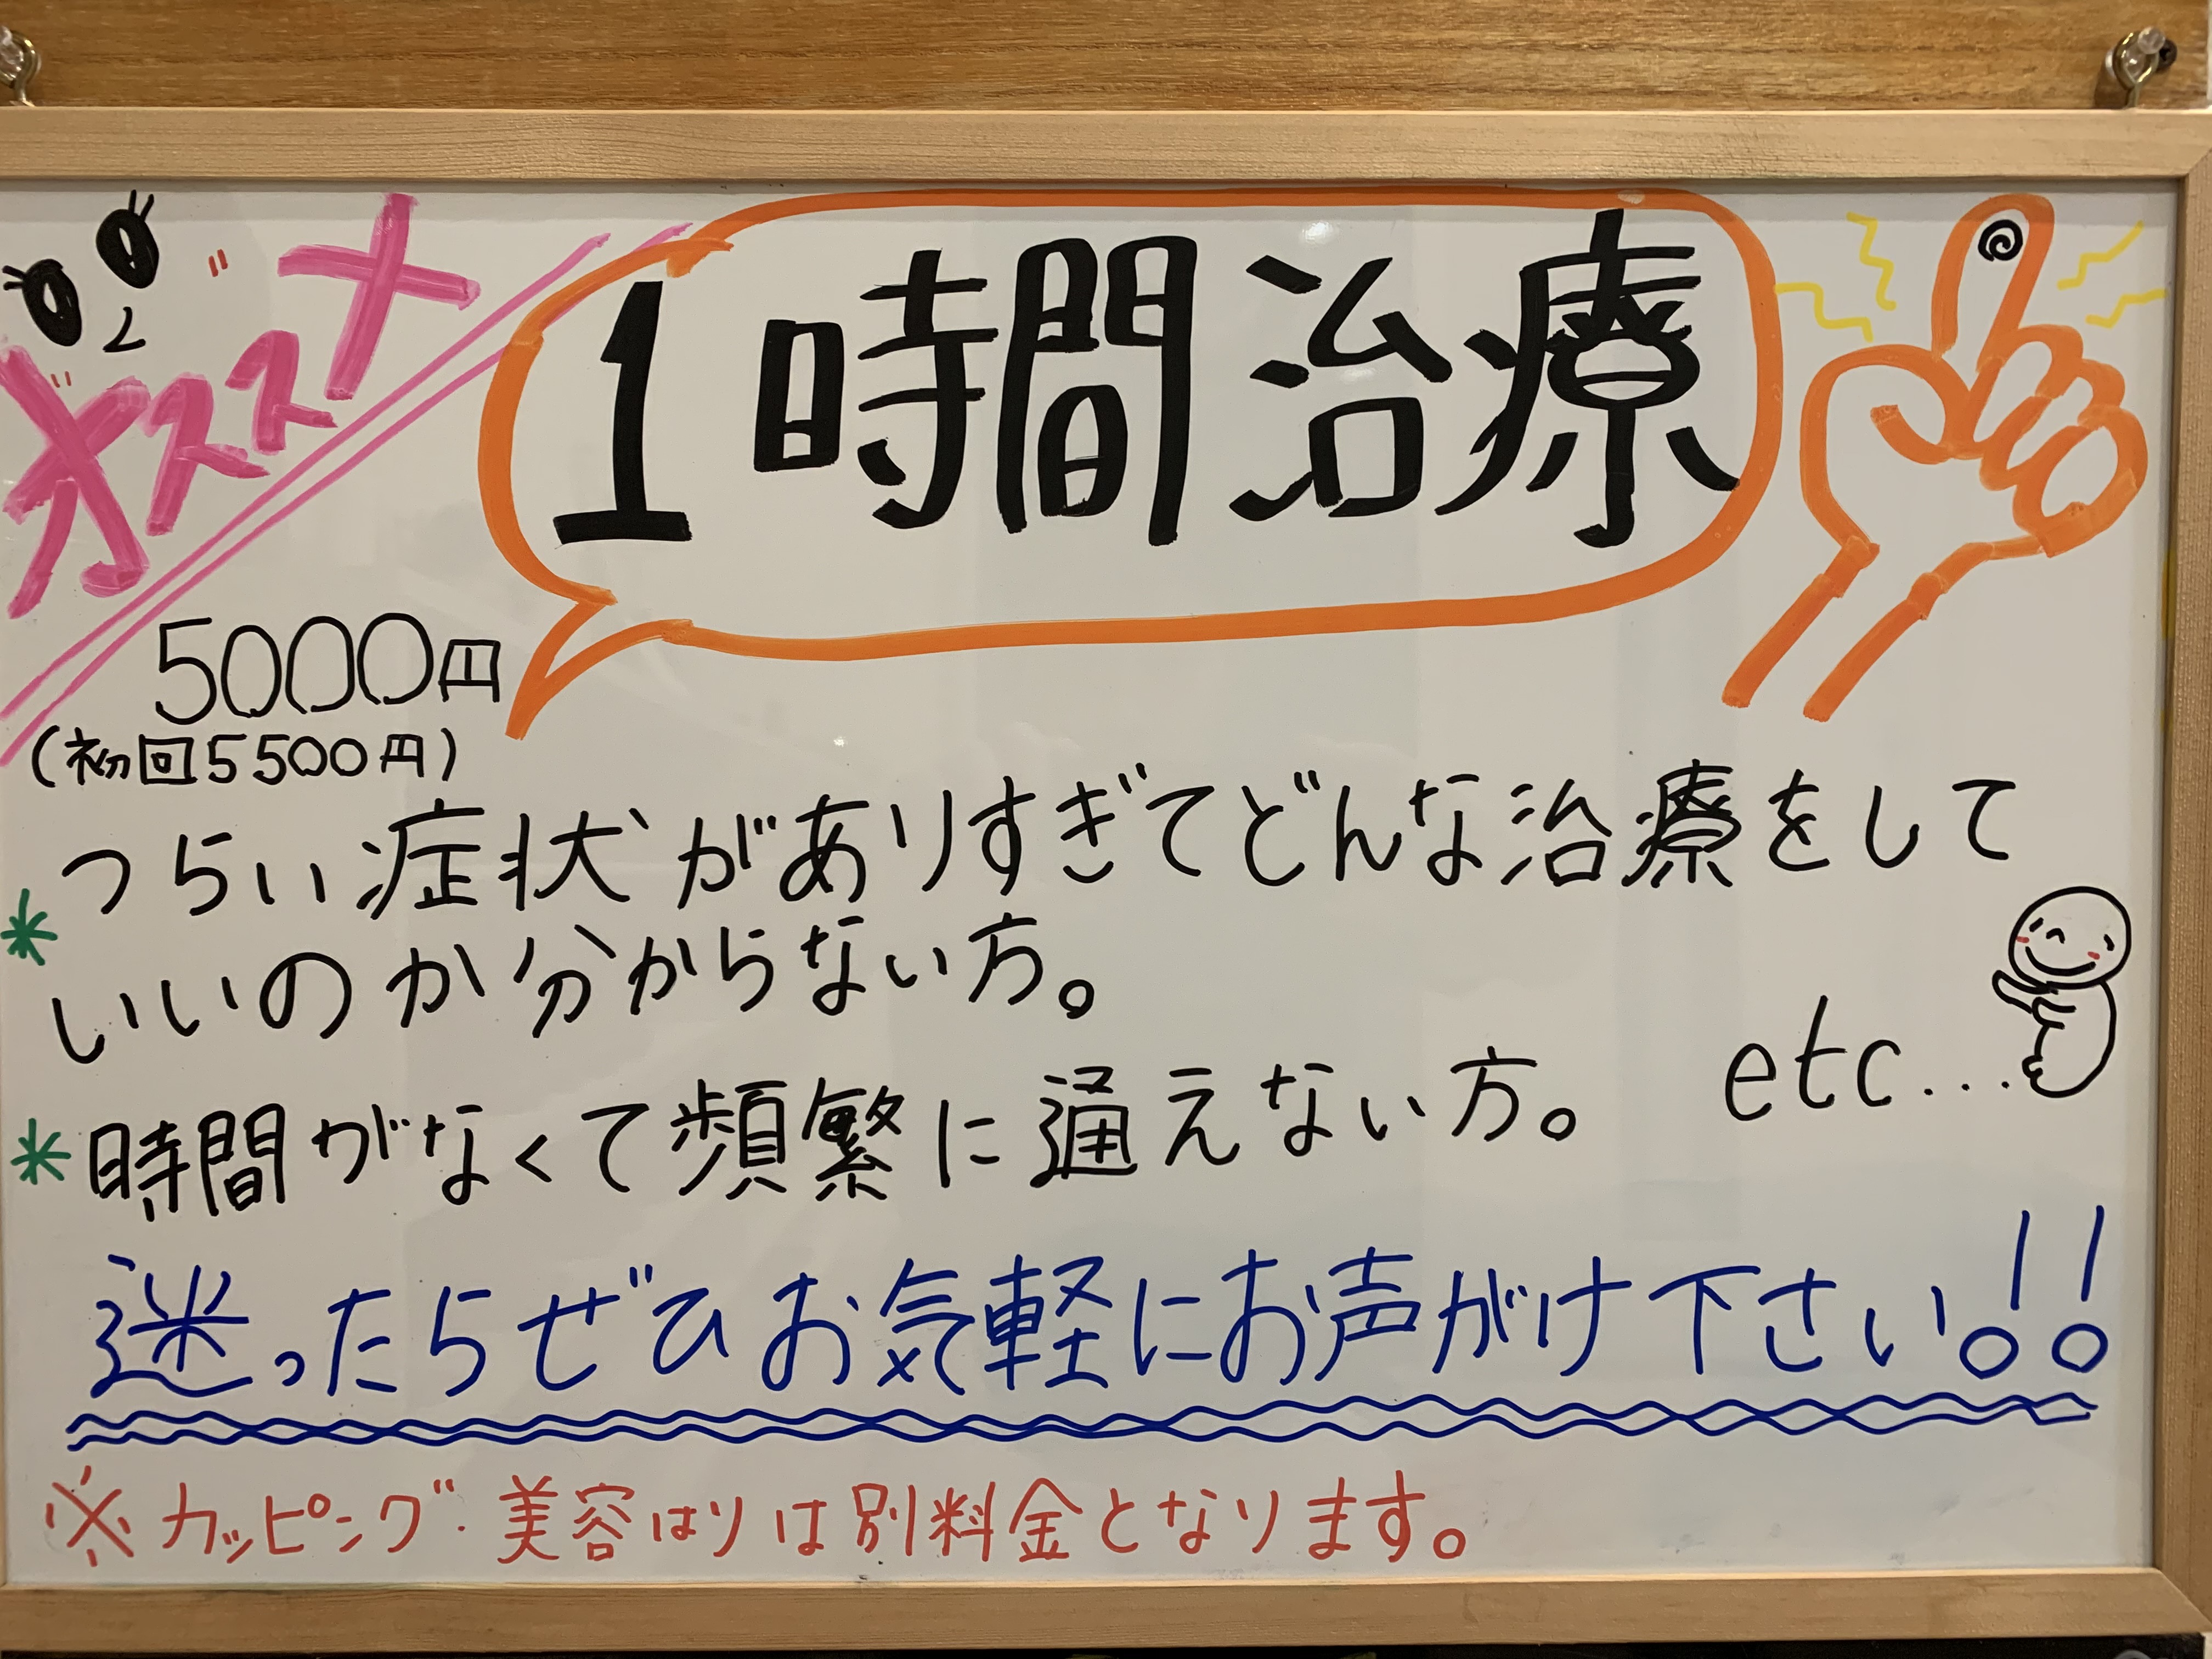 オススメ
1時間治療
5000円
(初回5500円)
* つらい症状がありすぎてどんな治療をして
いいのか分からない方。
* 時間がなくて頻繁に通えない方。
etc...
迷ったらぜひお気軽にお声がけ下さい!!
※カッピング・美容はりは別料金となります。